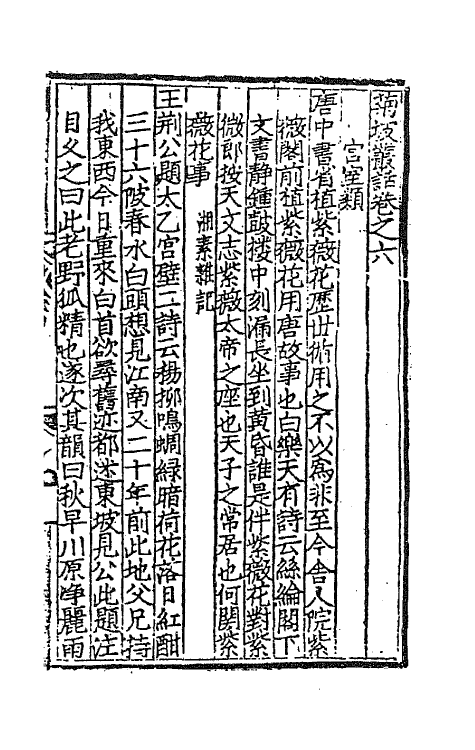 蒲坡叢話卷之六
宮室類
唐中書省植紫薇花歷世循用之不以為非至今舍人院紫
薇閣前植紫薇花用唐故事也白樂天有詩云絲綸閣下
文書静鍾鼓楼中刻漏長坐到黄昏誰是伴紫薇花對紫
微郎按天文志紫薇太帝之座也天子之常居也何関紫
薇花事　湘素雜記
王荆公題太乙宮壁二詩云楊柳鳴蜩緑暗荷花落日紅酣
三十六陂春水白頭想見江南又二十年前此地父兄持
我東西今日重來白首欲尋舊迹都迷東坡見公此題注
目久之曰此老野狐精也遂次其韻曰秋早川原净麗雨